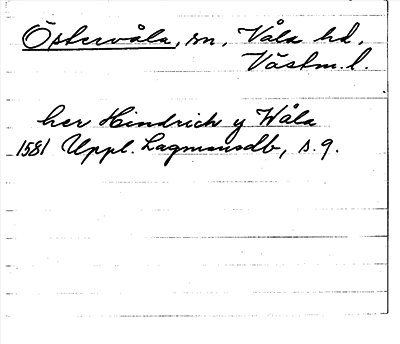 Östervåla, sn, Våla hd,
Västm. l.
her Hindrich y Wåla
1581 Uppl. Lagmansdb, s. 9.